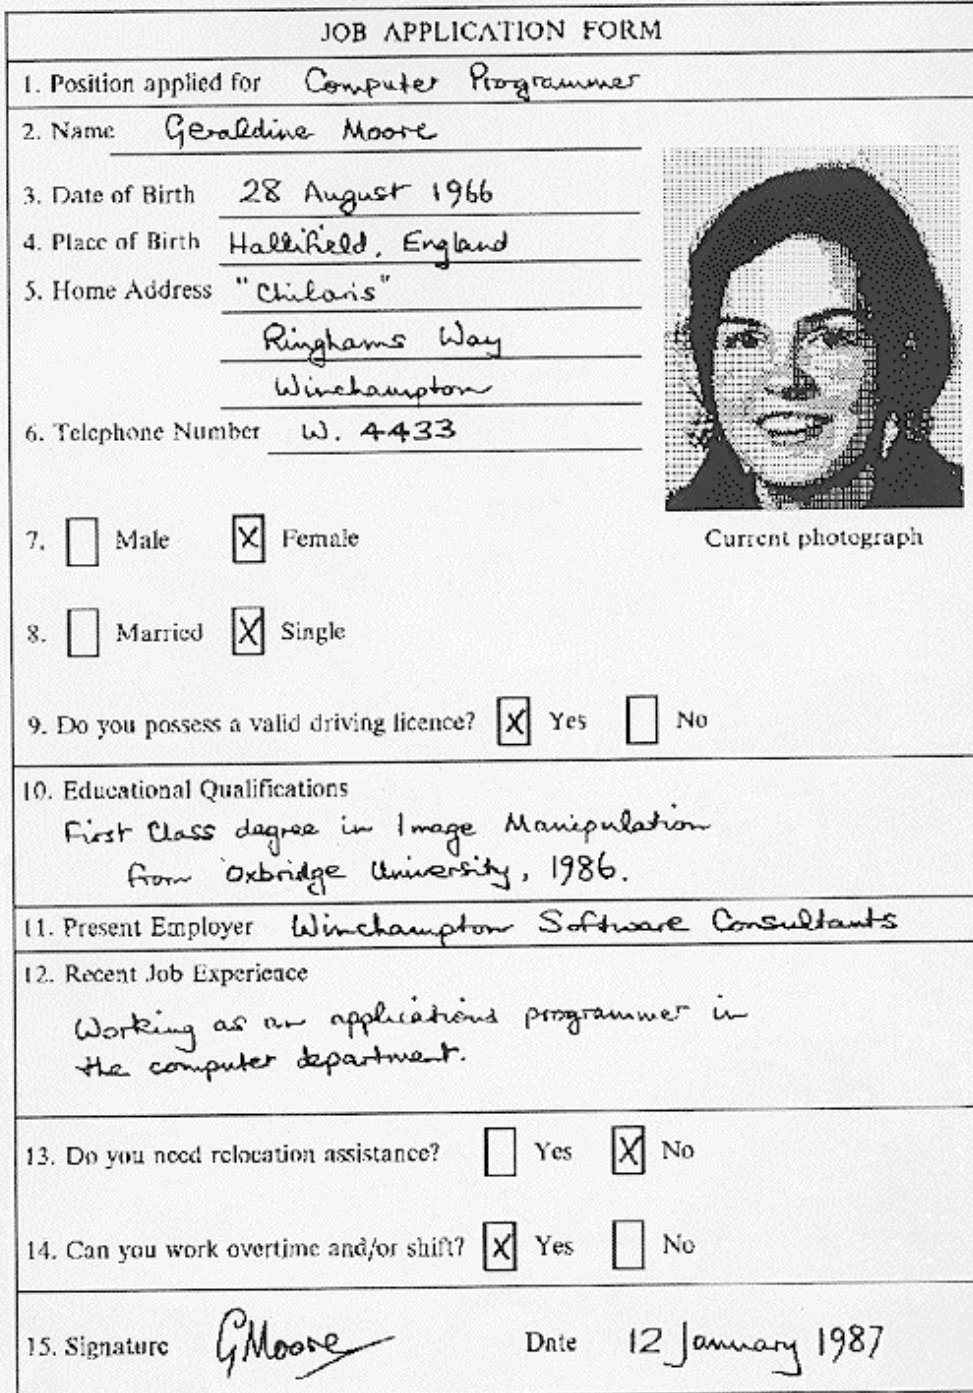 JOB APPLICATION FORM
1. Position applied for Computer Programmer
2. Name Geraldine Moore
3. Date of Birth 28 August 1966
4. Place of Birth Hallifield, England
5. Home Address "Chilaris"
Ringhams Way
Winchampton
6. Telephone Number W. 4433
Current photograph
7. Male X Female
8. Married X Single
9. Do you possess a valid driving licence? X Yes No
10. Educational Qualifications
First Class degree in Image Manipulation
from Oxbridge University, 1986.
11. Present Employer Winchampton Software Consultants
12. Recent Job Experience
Working as an applications programmer in
the computer department.
13. Do you need relocation assistance? Yes X No
14. Can you work overtime and/or shift? X Yes No
15. Signature GMoore Date 12 January 1987